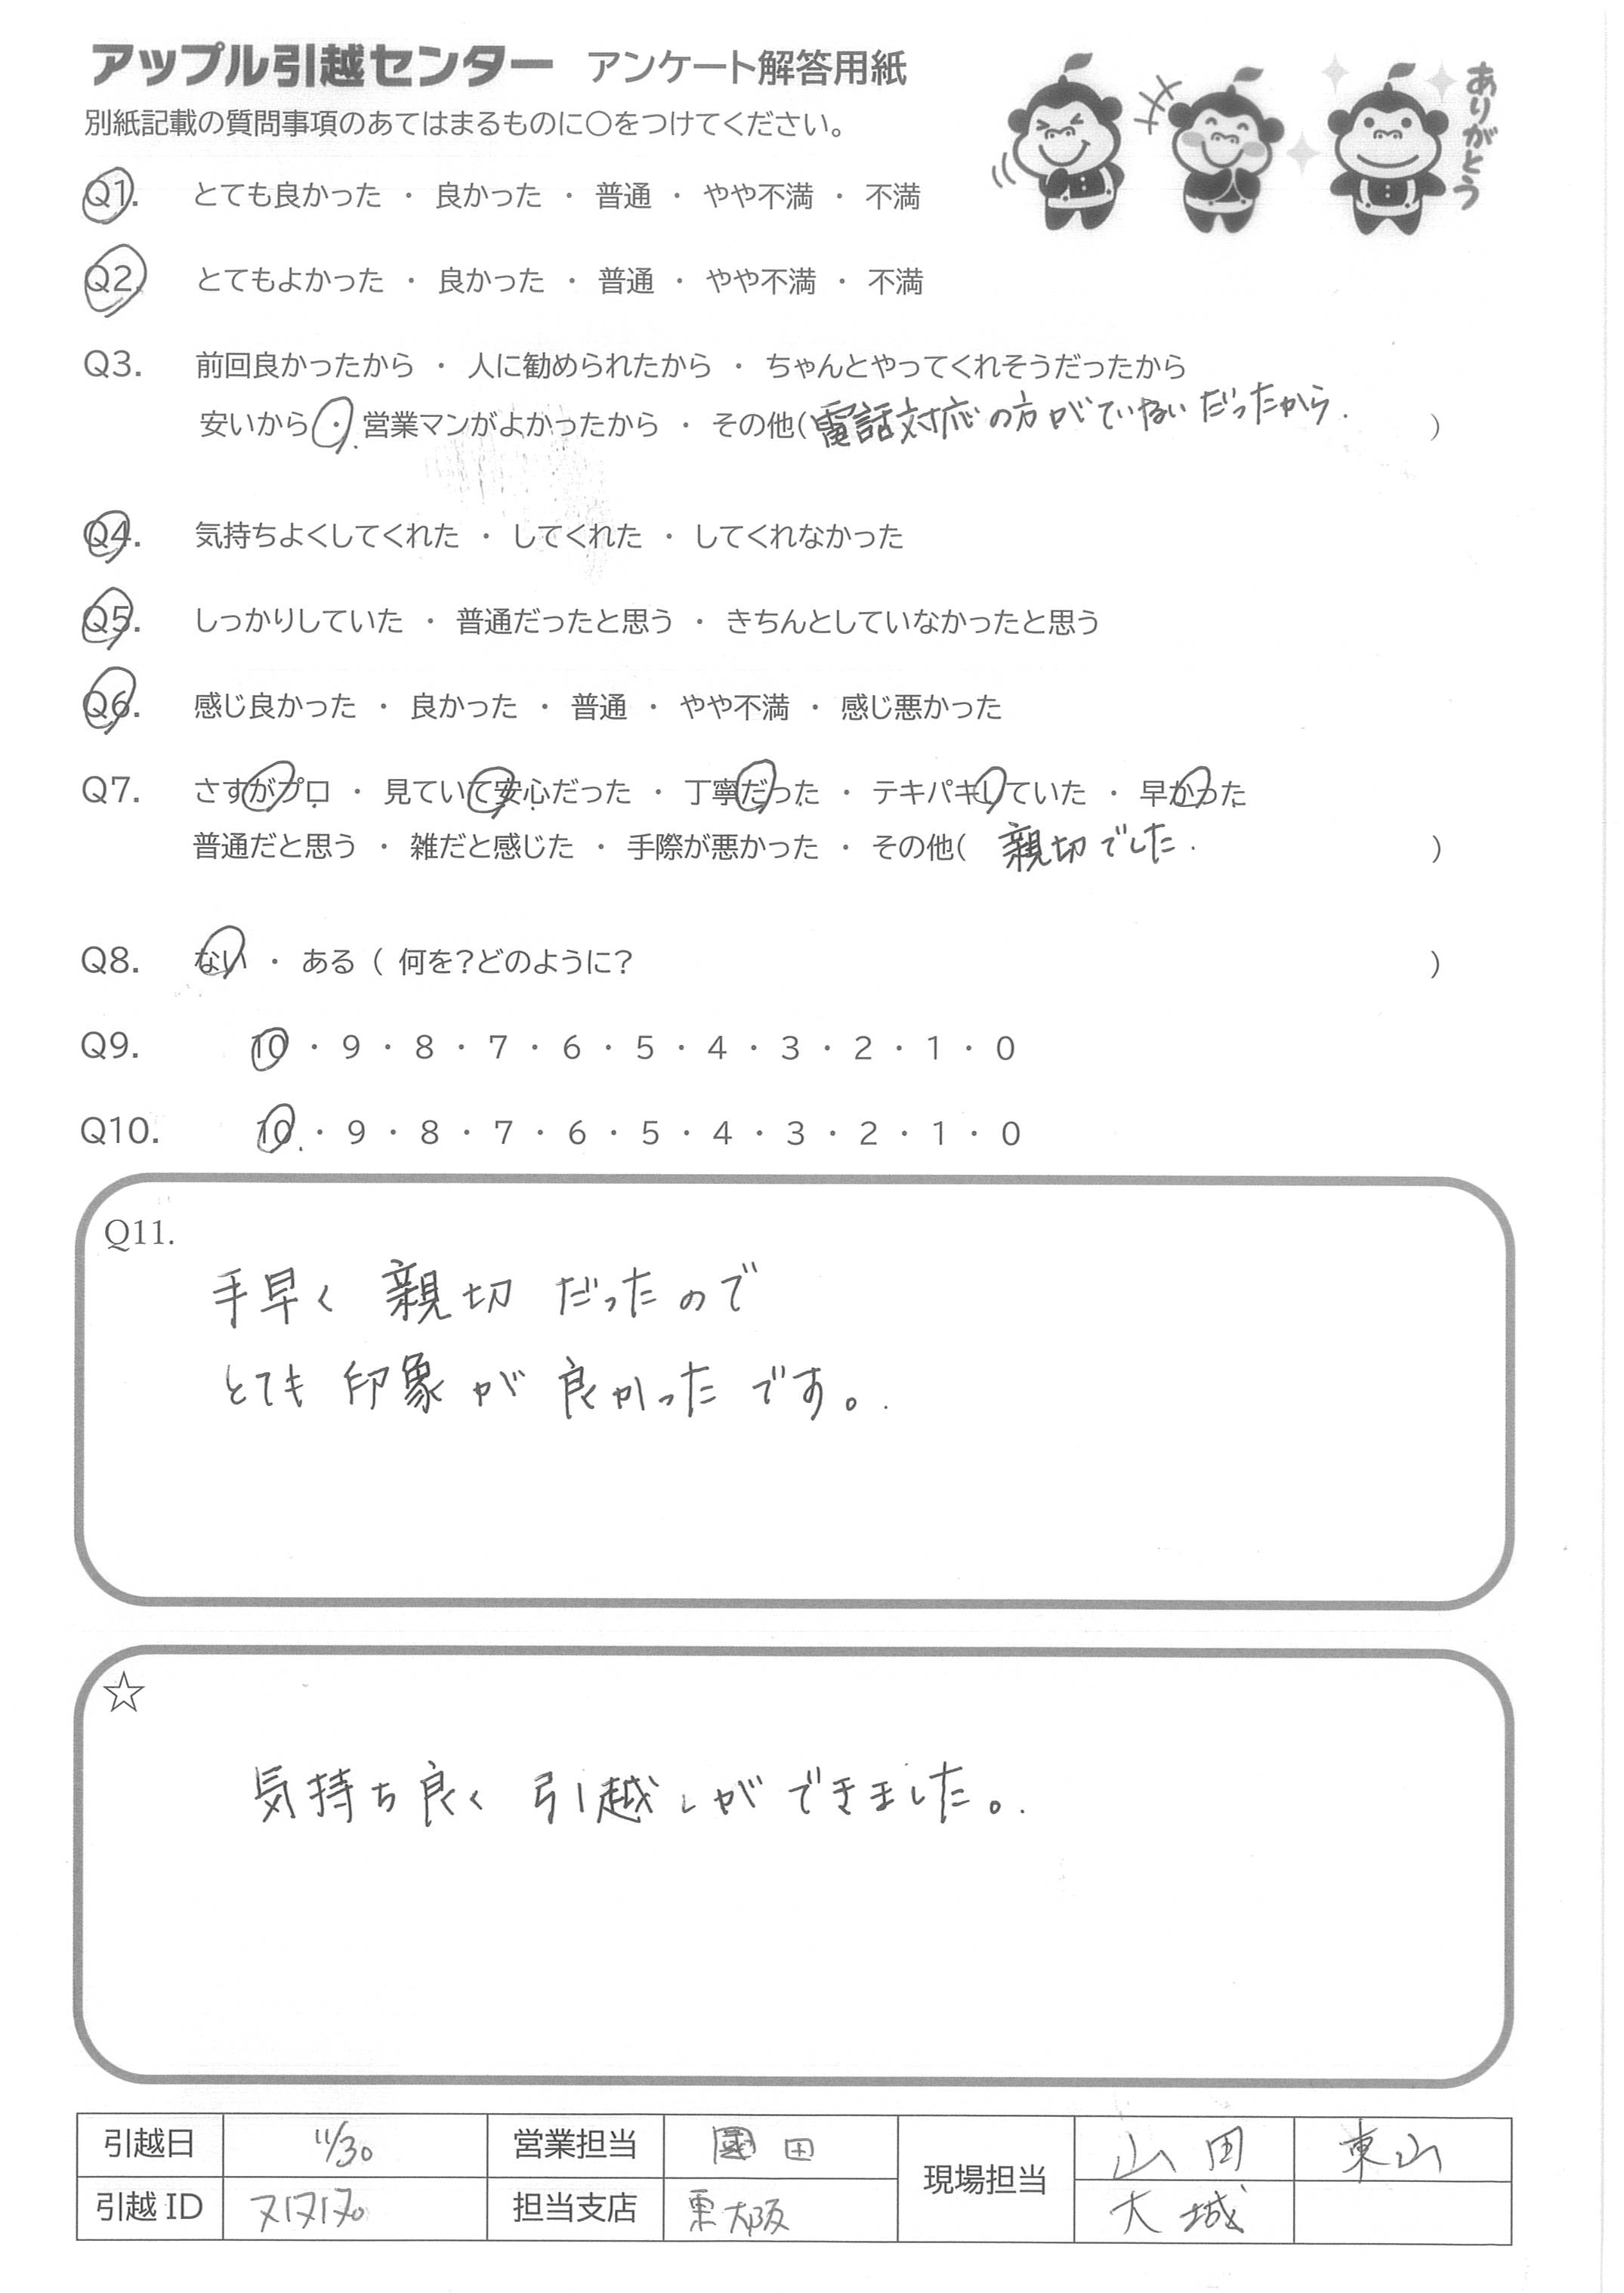 アップル引越センター アンケート解答用紙
ありがとう
別紙記載の質問事項のあてはまるものに○をつけてください。
Q1. とても良かった ・ 良かった ・ 普通 ・ やや不満 ・ 不満
Q2. とてもよかった ・ 良かった ・ 普通 ・ やや不満 ・ 不満
Q3. 前回良かったから ・ 人に勧められたから ・ ちゃんとやってくれそうだったから
安いから ・ 営業マンがよかったから ・ その他(電話対応の方がていねいだったから. )
Q4. 気持ちよくしてくれた ・ してくれた ・ してくれなかった
Q5. しっかりしていた ・ 普通だったと思う ・ きちんとしていなかったと思う
Q6. 感じ良かった ・ 良かった ・ 普通 ・ やや不満 ・ 感じ悪かった
Q7. さすがプロ ・ 見ていて安心だった ・ 丁寧だった ・ テキパキしていた ・ 早かった
普通だと思う ・ 雑だと感じた ・ 手際が悪かった ・ その他( 親切でした. )
Q8. ない ・ ある ( 何を?どのように? )
Q9. 10 ・ 9 ・ 8 ・ 7 ・ 6 ・ 5 ・ 4 ・ 3 ・ 2 ・ 1 ・ 0
Q10. 10 ・ 9 ・ 8 ・ 7 ・ 6 ・ 5 ・ 4 ・ 3 ・ 2 ・ 1 ・ 0
Q11.
手早く 親切 だったので
とても 印象 が 良かった です。
☆
気持ち良く 引越しが できました。
引越日 11/30 営業担当 田 現場担当 山田 東山
引越ID 担当支店 東大阪 大城